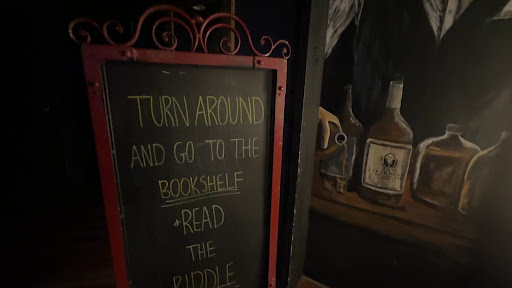 TURN AROUND
AND GO TO THE
BOOKSHELF
+READ
THE
RIDDLE